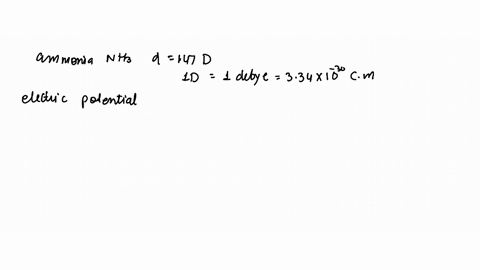 ammonia NH3 d = 1.47 D
1D = 1 debye = 3.34 × 10^-30 C.m
electric potential